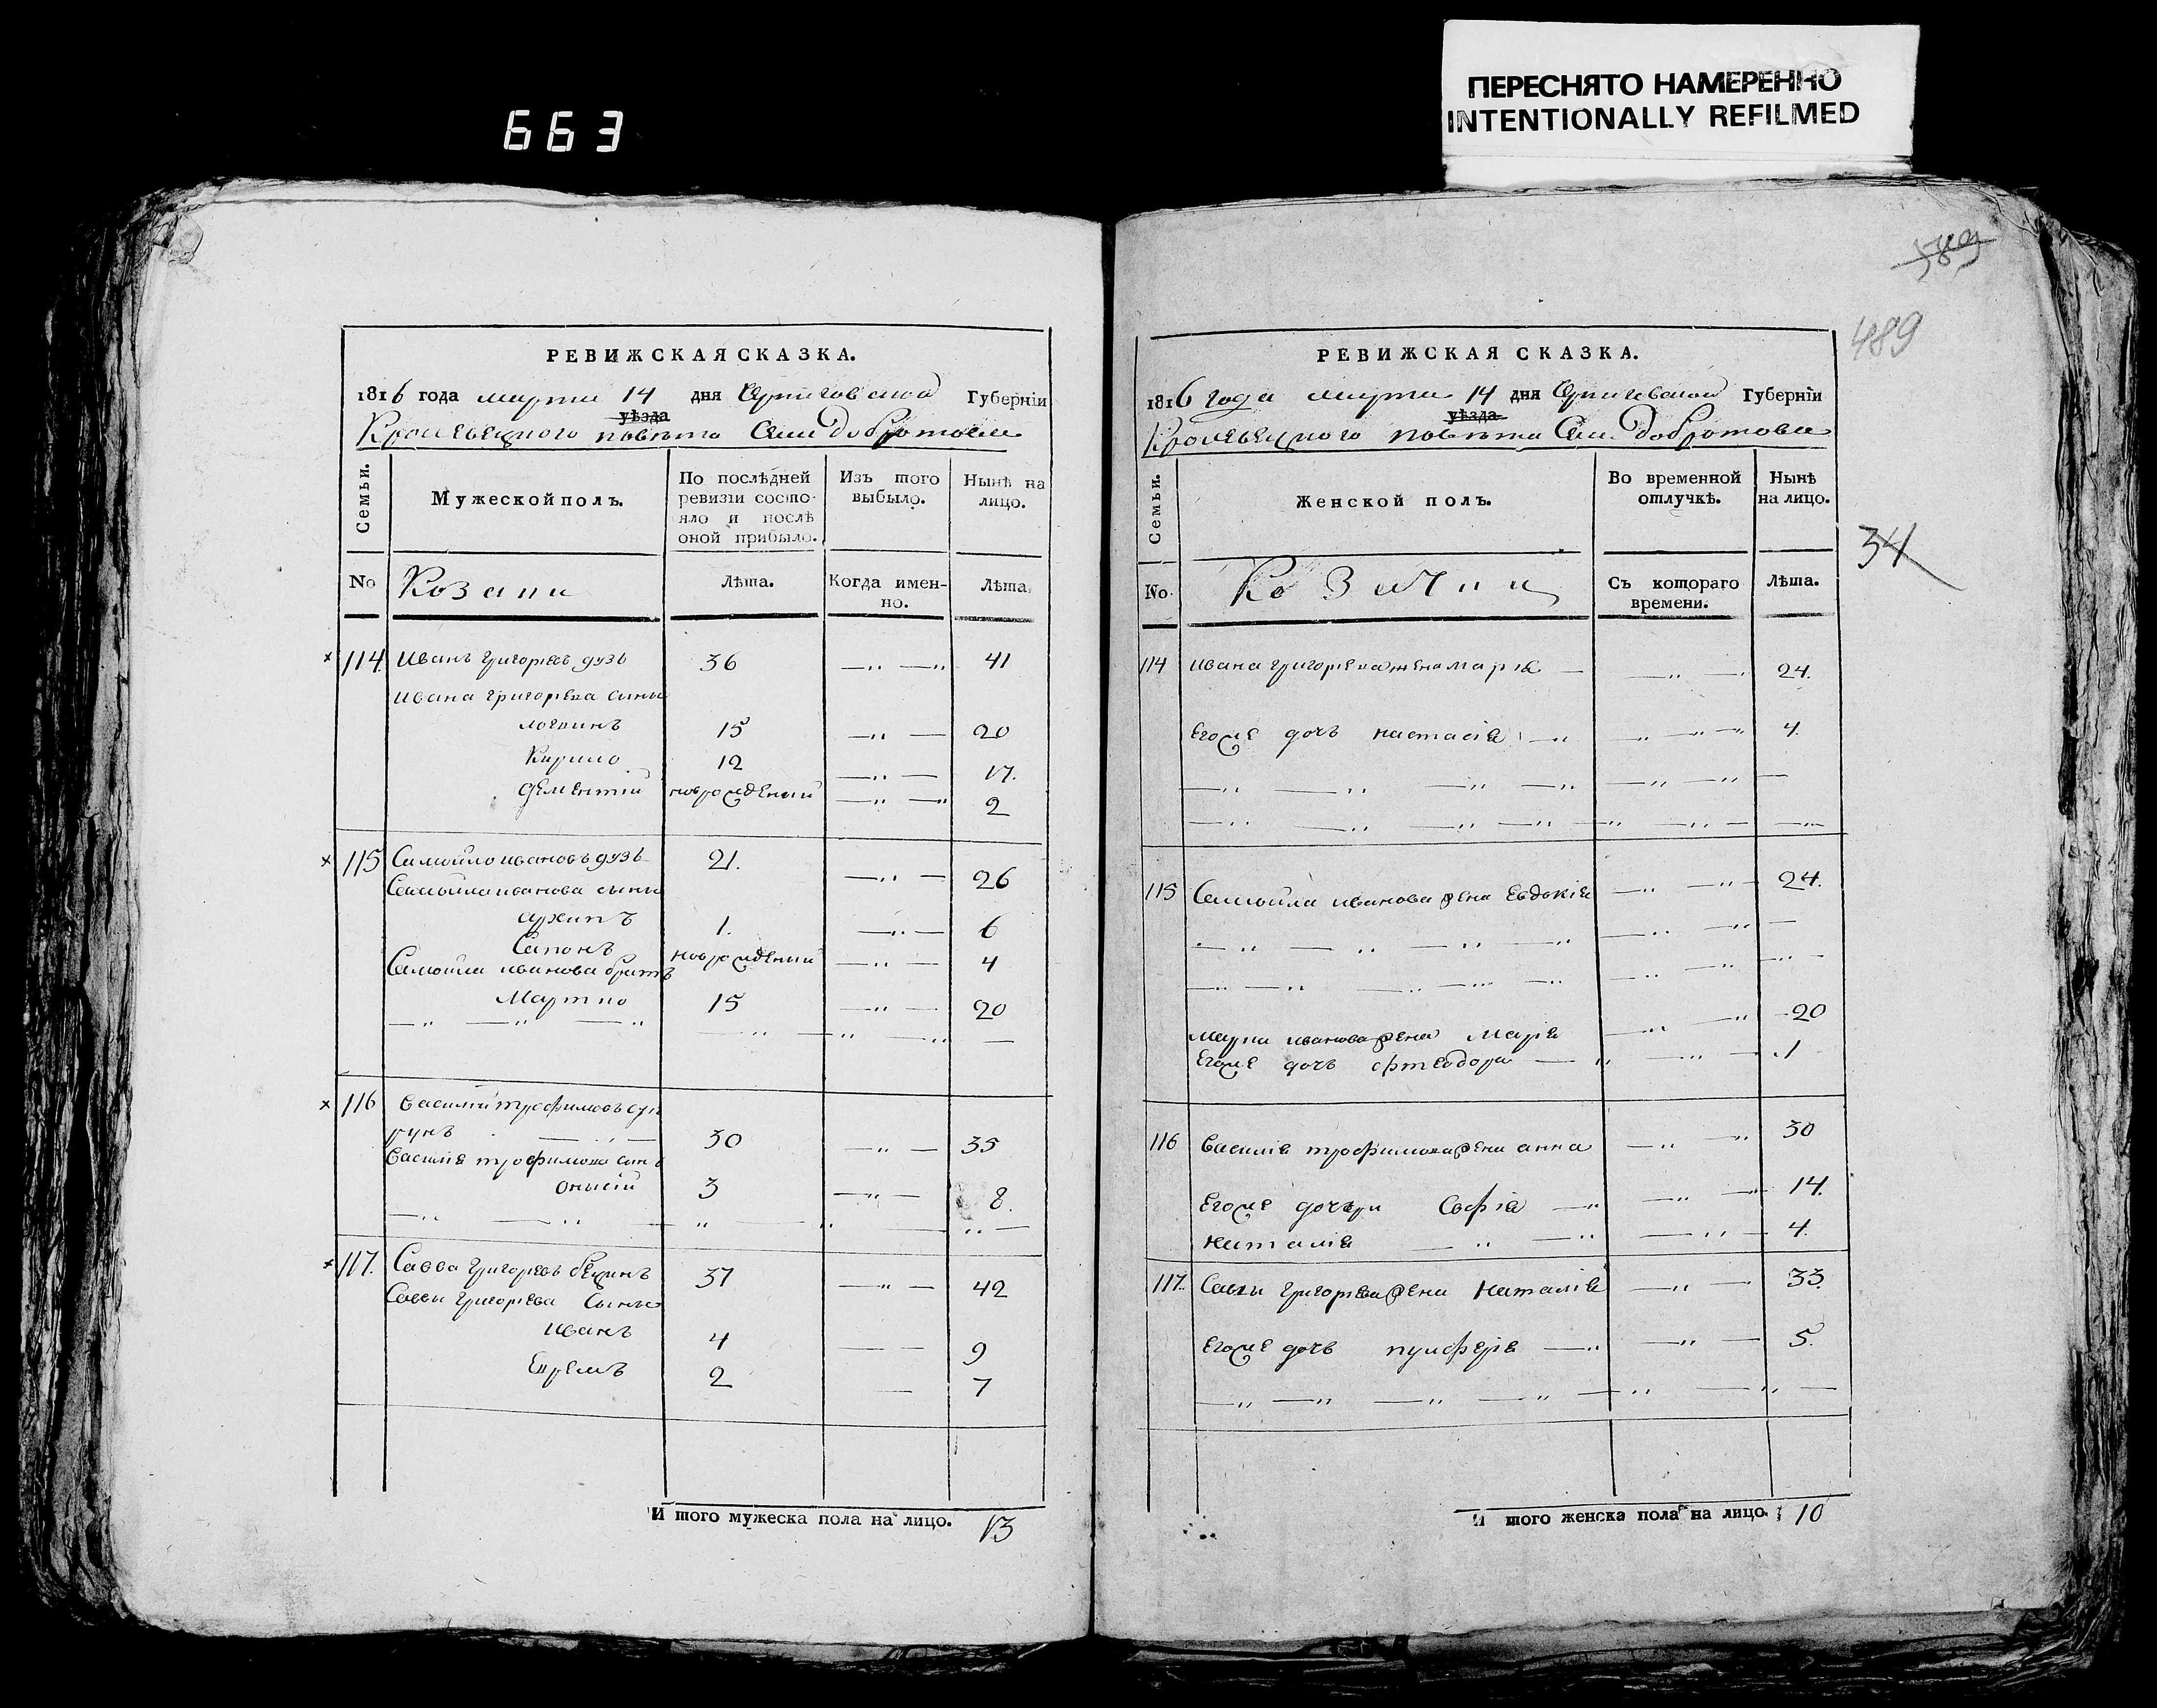 663
ПЕРЕСНЯТО НАМЕРЕННО
INTENTIONALLY REFILMED
РЕВИЖСКАЯ СКАЗКА.
1816 года марта 14 дня Черниговской Губернїи
уѣзда
Кролевецкого повѣта Села Добротова
Семьи.
Мужеской полъ.
По послѣдней ревизїи состояло и послѣ оной прибыло.
Изъ того выбыло.
Нынѣ на лицо.
No
Козаки
Лѣта.
Когда именно.
Лѣта.
114. Иванъ Григорьевъ дузь 36 41
Ивана Григорьева сыны
логвинъ 15 20
Кирило 12 17.
Дементїй новрожденый 2
115 Самойло ивановъ дузь 21. 26
Самойла иванова сыны
архипъ 1. 6
Сапонъ новрожденый 4
Самойла иванова братъ
Марко 15 20
116 Василїй трофимовъ
рунъ 30 35
Василїя трофимова сынъ
онисїй 3 8.
117. Савва Григорьевъ 37 42
Саввы Григорьева Сыны
иванъ 4 9
Ефремъ 2 7
И того мужеска пола на лицо. 13
589
489
РЕВИЖСКАЯ СКАЗКА.
1816 года марта 14 дня Черниговской Губернїи
уѣзда
Кролевецкого повѣта Села Добротова
34
Семьи.
Женской полъ.
Во временной отлучкѣ.
Нынѣ на лицо.
No.
Козачки
Съ котораго времени.
Лѣта.
114 Ивана григорьева жена марїя 24.
Егоже дочь настасїя 4.
115 Самойла иванова жена Евдокїя 24.
Марка иванова жена Марїя 20
Егоже дочь 1
116 Василїя трофимова жена анна 30
Егоже дочери Софїя 14.
Наталїя 4.
117. Саввы Григорьева жена Наталїя 33.
Егоже дочь пулферїя 5.
И того женска пола на лицо. 10